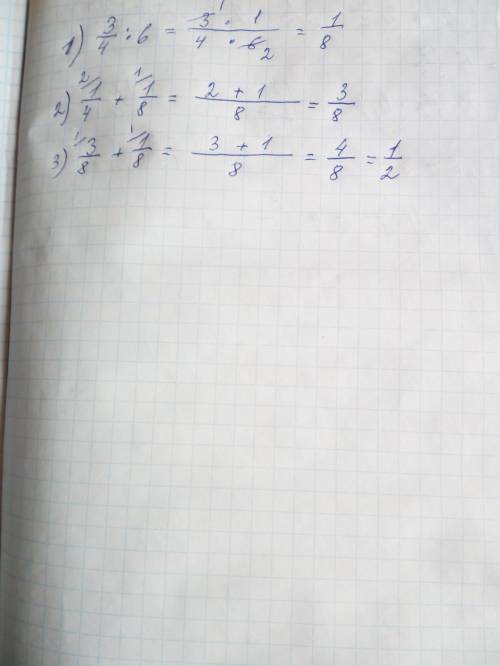 1) 3/4 : 6 = 3 · 1 / 4 · 6 2 = 1/8
2) 2/ 1/4 + 1/ 1/8 = 2 + 1 / 8 = 3/8
3) 1/ 3/8 + 1/ 1/8 = 3 + 1 / 8 = 4/8 = 1/2